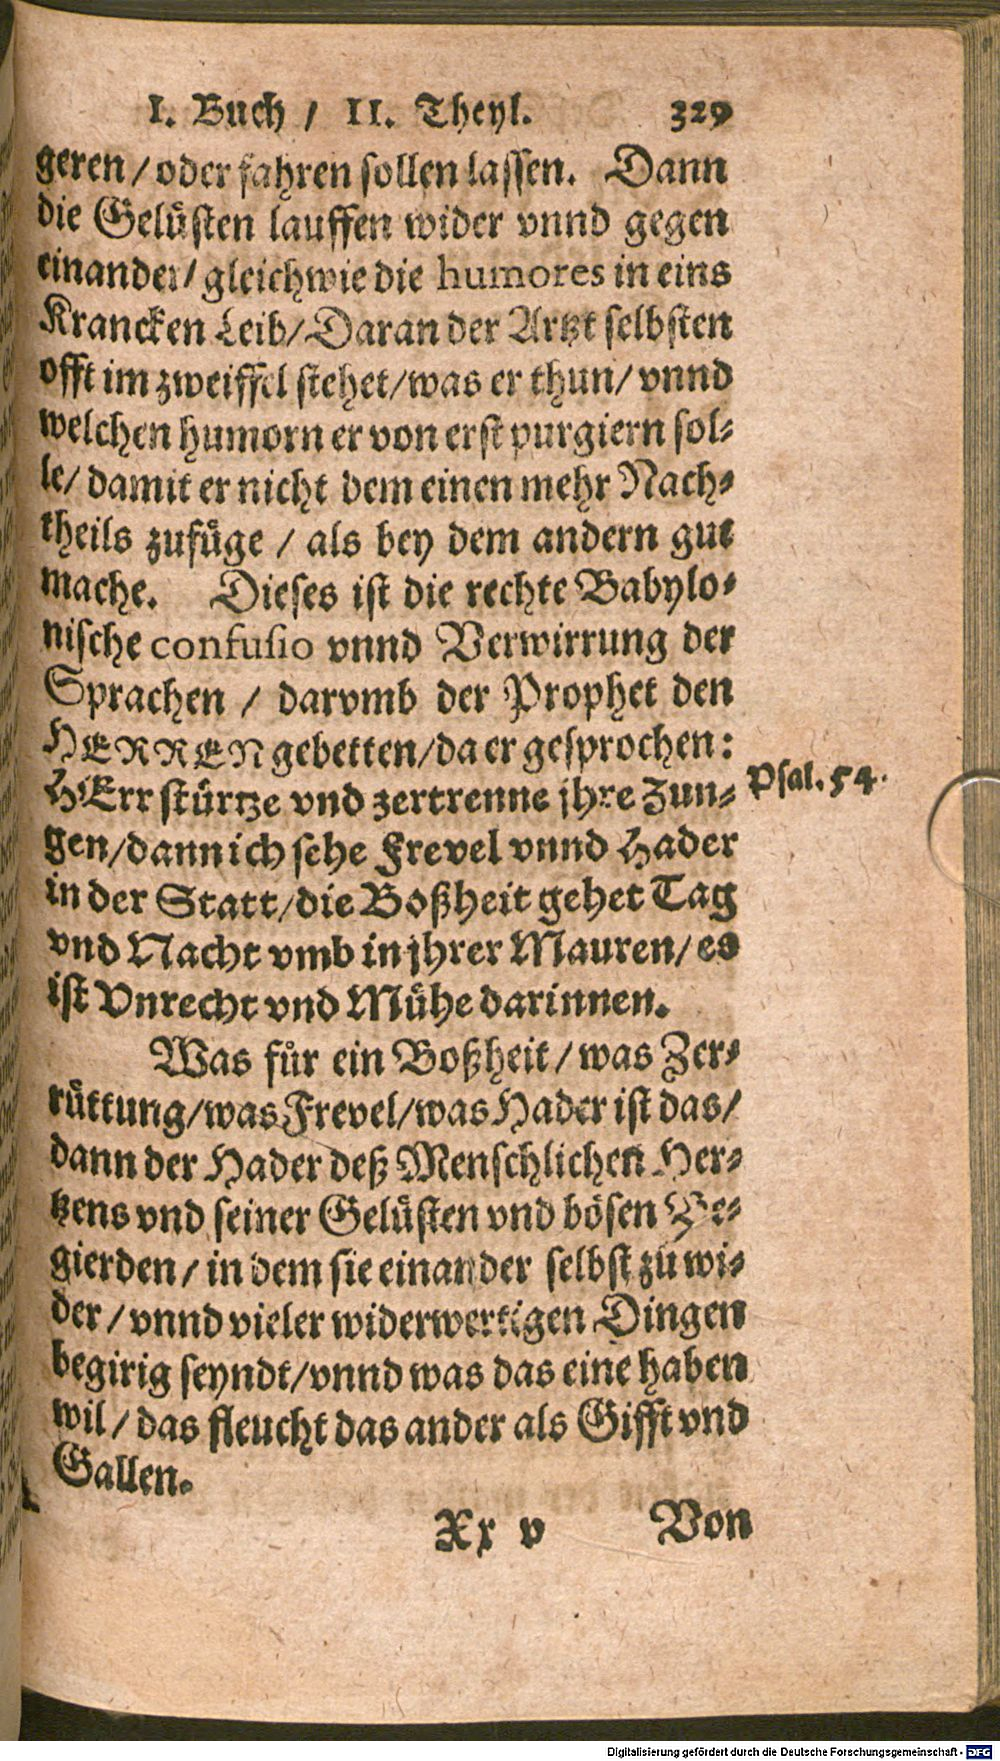 I. Buch / II. Theyl. 329
geren / oder fahren sollen lassen. Dann
die Gelüsten lauffen wider vnnd gegen
einander / gleichwie die humores in eins
Krancken Leib / Daran der Artzt selbsten
offt im zweiffel stehet / was er thun / vnnd
welchen humorn er von erst purgiern sol-
le / damit er nicht dem einen mehr Nach-
theils zufüge / als bey dem andern gut
mache. Dieses ist die rechte Babylo-
nische confusio vnnd Verwirrung der
Sprachen / darvmb der Prophet den
HERREN gebetten / da er gesprochen:
HErr stürtze vnd zertrenne jhre Zun-
Psal. 54.
gen / dann ich sehe Frevel vnnd Hader
in der Statt / die Boßheit gehet Tag
vnd Nacht vmb in jhrer Mauren / es
ist Vnrecht vnd Mühe darinnen.
Was für ein Boßheit / was Zer-
rüttung / was Frevel / was Hader ist das /
dann der Hader deß Menschlichen Her-
tzens vnd seiner Gelüsten vnd bösen Be-
gierden / in dem sie einander selbst zu wi-
der / vnnd vieler widerwertigen Dingen
begirig seyndt / vnnd was das eine haben
wil / das fleucht das ander als Gifft vnd
Gallen.
Xx v Von
Digitalisierung gefördert durch die Deutsche Forschungsgemeinschaft - DFG